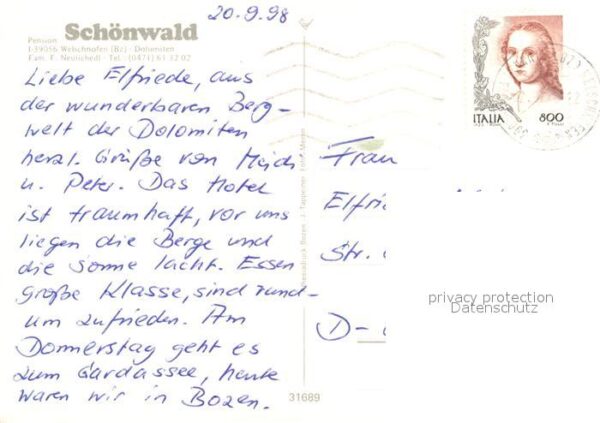 20.9.98
Pension Schönwald
I-39056 Welschnofen (Bz) - Dolomiten
Fam. F. Neulichedl - Tel. (0471) 61 32 02
Liebe Elfriede, aus
der wunderbaren Berg-
welt der Dolomiten
herzl. Grüße von
u. Peter. Das Hotel
ist traumhaft, vor uns
liegen die Berge und
die Sonne lacht. Essen
große Klasse, sind rund-
um zufrieden. Am
Donnerstag geht es
zum Gardassee, heute
waren wir in Bozen.
ITALIA 800
Frau
Elfrie
Str.
D-
privacy protection
Datenschutz
31689